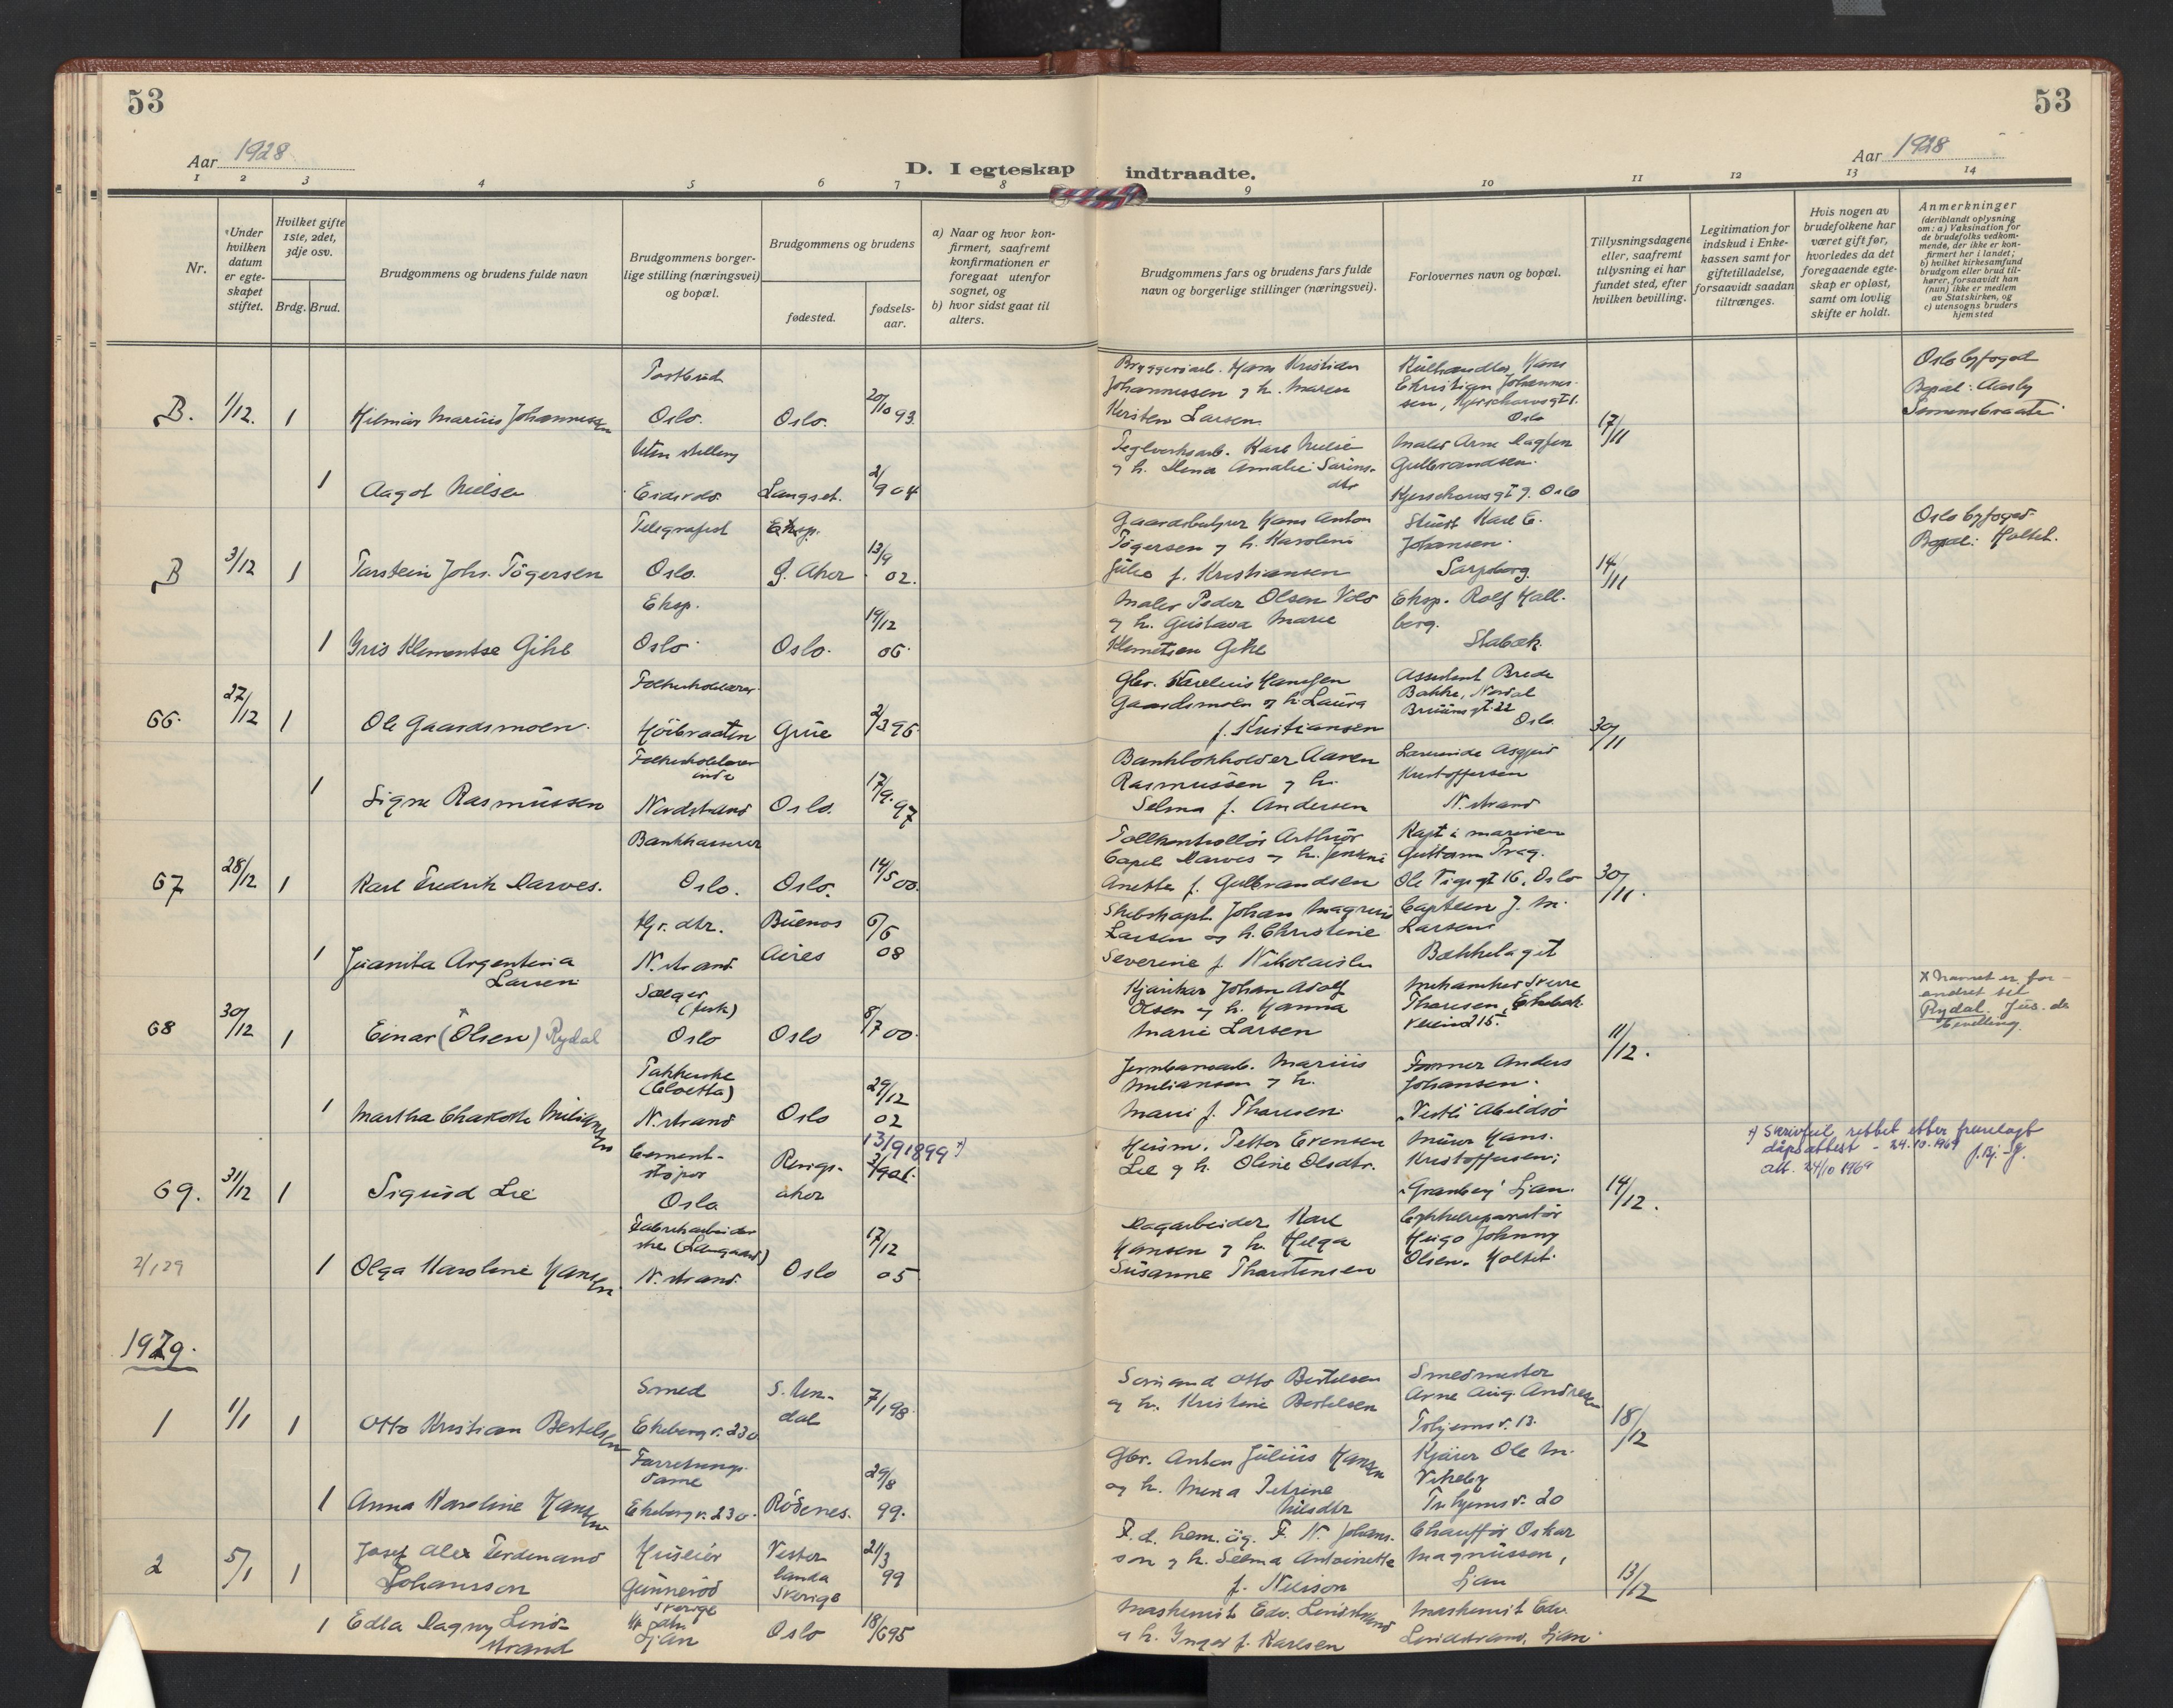 53
53
Aar 1928
D. I egteskap indtraadte.
Aar 1928
1 2 3 4 5 6 7 8 9 10 11 12 13 14
Nr.
Under hvilken datum er egteskapet stiftet.
Hvilket gifte 1ste, 2det, 3dje osv.
Brdg. Brud.
Brudgommens og brudens fulde navn
Brudgommens borgerlige stilling (næringsvei) og bopæl.
Brudgommens og brudens
fødested.
fødselsaar.
a) Naar og hvor konfirmert, saafremt konfirmationen er foregaat utenfor sognet, og
b) hvor sidst gaat til alters.
Brudgommens fars og brudens fars fulde navn og borgerlige stillinger (næringsvei).
Forlovernes navn og bopæl.
Tillysningsdagene eller, saafremt tillysning ei har fundet sted, efter hvilken bevilling.
Legitimation for indskud i Enkekassen samt for giftetilladelse, forsaavidt saadan tiltrænges.
Hvis nogen av brudefolkene har været gift før, hvorledes da det foregaaende egteskap er opløst, samt om lovlig skifte er holdt.
Anmerkninger
(deriblandt oplysning om: a) Vaksination for de brudefolks vedkommende, der ikke er konfirmert her i landet;
b) hvilket kirkesamfund brudgom eller brud tilhører, forsaavidt han (hun) ikke er medlem av Statskirken, og
c) utensogns bruders hjemsted
B. 1/12. 1 Hilmar Marius Johannessen
Postbud
Oslo. Oslo. 20/10 93.
Bryggeriarb. Hans Kristian
Johannessen og h. Maren
Kirsten Larsen
Kulhandler Hans
Christian Johannessen,
Oslo
17/11
Oslo byfoged
Bopæl: Aasly
Simensbraaten
1 Aagot Nielsen
Uten stilling
Eidsvold. Langset. 2/9 04
Teglverksarb. Karl Nielse
og h. Lina Amalie Sørensdtr
Maler Arne Dagfin
Gulbrandsen.
Oslo
B 3/12 1 Torstein Johs. Tögersen
Telegrafist
Oslo. Ø. Aker 13/9 02.
Gaardbruker Hans Anton
Tögersen og h. Karoline
Julie f. Kristiansen
Karl E.
Johansen.
Sarpsborg.
14/11
Oslo byfoged.
Bopæl: Holtet.
1 Iris Klementse Gihle
Eksp.
Oslo. Oslo. 19/12 06.
Maler Peder Olsen Vold
og h. Gustava Marie
Klemetsen Gihle
Eksp. Rolf Hallberg.
Stabæk.
66. 27/12 1 Ole Gaardsmoen.
Folkeskolelærer.
Höibraaten Grue 2/3 96.
Gbr. Hansen
Gaardsmoen og h. Laura
f. Kristiansen
Assistent Brede
Bakke, Nordal
Bruunsgt. 22
Oslo
30/11
1 Signe Rasmussen
Folkeskolelærerinde
Nordstrand Oslo. 17/9. 97
Bankbokholder Aaren
Rasmussen og h.
Selma f. Andersen
Kristoffersen
N. strand
67 28/12 1 Karl Fredrik Darves.
Bankkasserer
Oslo. Oslo. 14/5 00.
Tollkontrollör Arthur
Capel Darves og h. Jenkne
Anette f. Gulbrandsen
Kapt i marinen
Guttorm Prag.
Ole Vigs gt 16, Oslo
30/11.
1 Juanita Argentina
Larsen.
Hr. dtr.
N. strand. Buenos Aires 6/6 08
Skibskapt. Johan Magnus
Larsen og h. Christine
Severine f. Nikolaisen
Capteen J. M.
Larsen
Bækkelaget
68 30/12 1 Einar (Olsen) Rydal
Sælger
(fisk)
Oslo Oslo 8/7 00.
Johan Adolf
Olsen og h. Hanna
Marie Larsen
Mekaniker Sverre
Thoresen, Ekeberg
veien 215.
11/12.
x Navnet er forandret til
Rydal. Jus. d.
bevilling.
1 Martha Charlotte Miliansen
Pakkerske
(Cloetta)
N. strand. Oslo 29/12 02
Jernbanearb. Marius
Miliansen og h.
Marie f. Thoresen.
Former Anders
Johansen.
"Vestli" Abildsö
69. 31/12 1 Sigurd Lie
Cementstöper
Oslo Rengsaker
13/9 1899 x)
Husm. Petter Evensen
Lie og h. Oline Olsdtr.
Murer Hans.
Kristoffersen;
"Granberg" Ljan.
14/12.
x) Skrivfeil, rettet etter fremlagt
dåpsattest - 24.10.1969
att. 24/10 1969
2/1 29
1 Olga Karoline Hansen.
Fabrikarbeiderske (Langaard)
N. strand. Oslo 17/12 05
Dagarbeider Karl
Hansen og h. Helga
Susanne Thorstensen
Cykkelreparatör
Hugo Johnny
Olsen. Holtet.
1929.
1 1/1 1 Otto Kristian Bertelsen
Smed
Ekeberg v. 230 S. Undal 7/1 98.
Sömand Otto Bertelsen
og h. Kristine Bertelsen
Smedmester
Arne Aug. Andresen
v. 13.
18/12
1 Anna Karoline Hansen
Forretningsdame
Ekeberg v. 230. Rödenes. 29/8 99.
Gbr. Anton Julius Hansen
og h. Mina Petrine
Nilsdtr
Kjörer Ole M.
Vikeby
v. 20
2 5/1 1 Josef Alex Ferdinand
Johansson
Huseier
Gunneröd
Sverige
Vesterlanda
Sverige 21/3 99
F. d. hem. äg. F. N. Johansson og h. Selma Antoinette
f. Nilsson
Chauffør Oskar
Magnussen,
Ljan
13/12
1 Edla Dagny Lindstrand
Ljan Oslo 18/6 95
Maskinist Edv. Lindstrand
og h. Inga f. Karlsen
Maskinist Edv.
Lindstrand, Ljan.